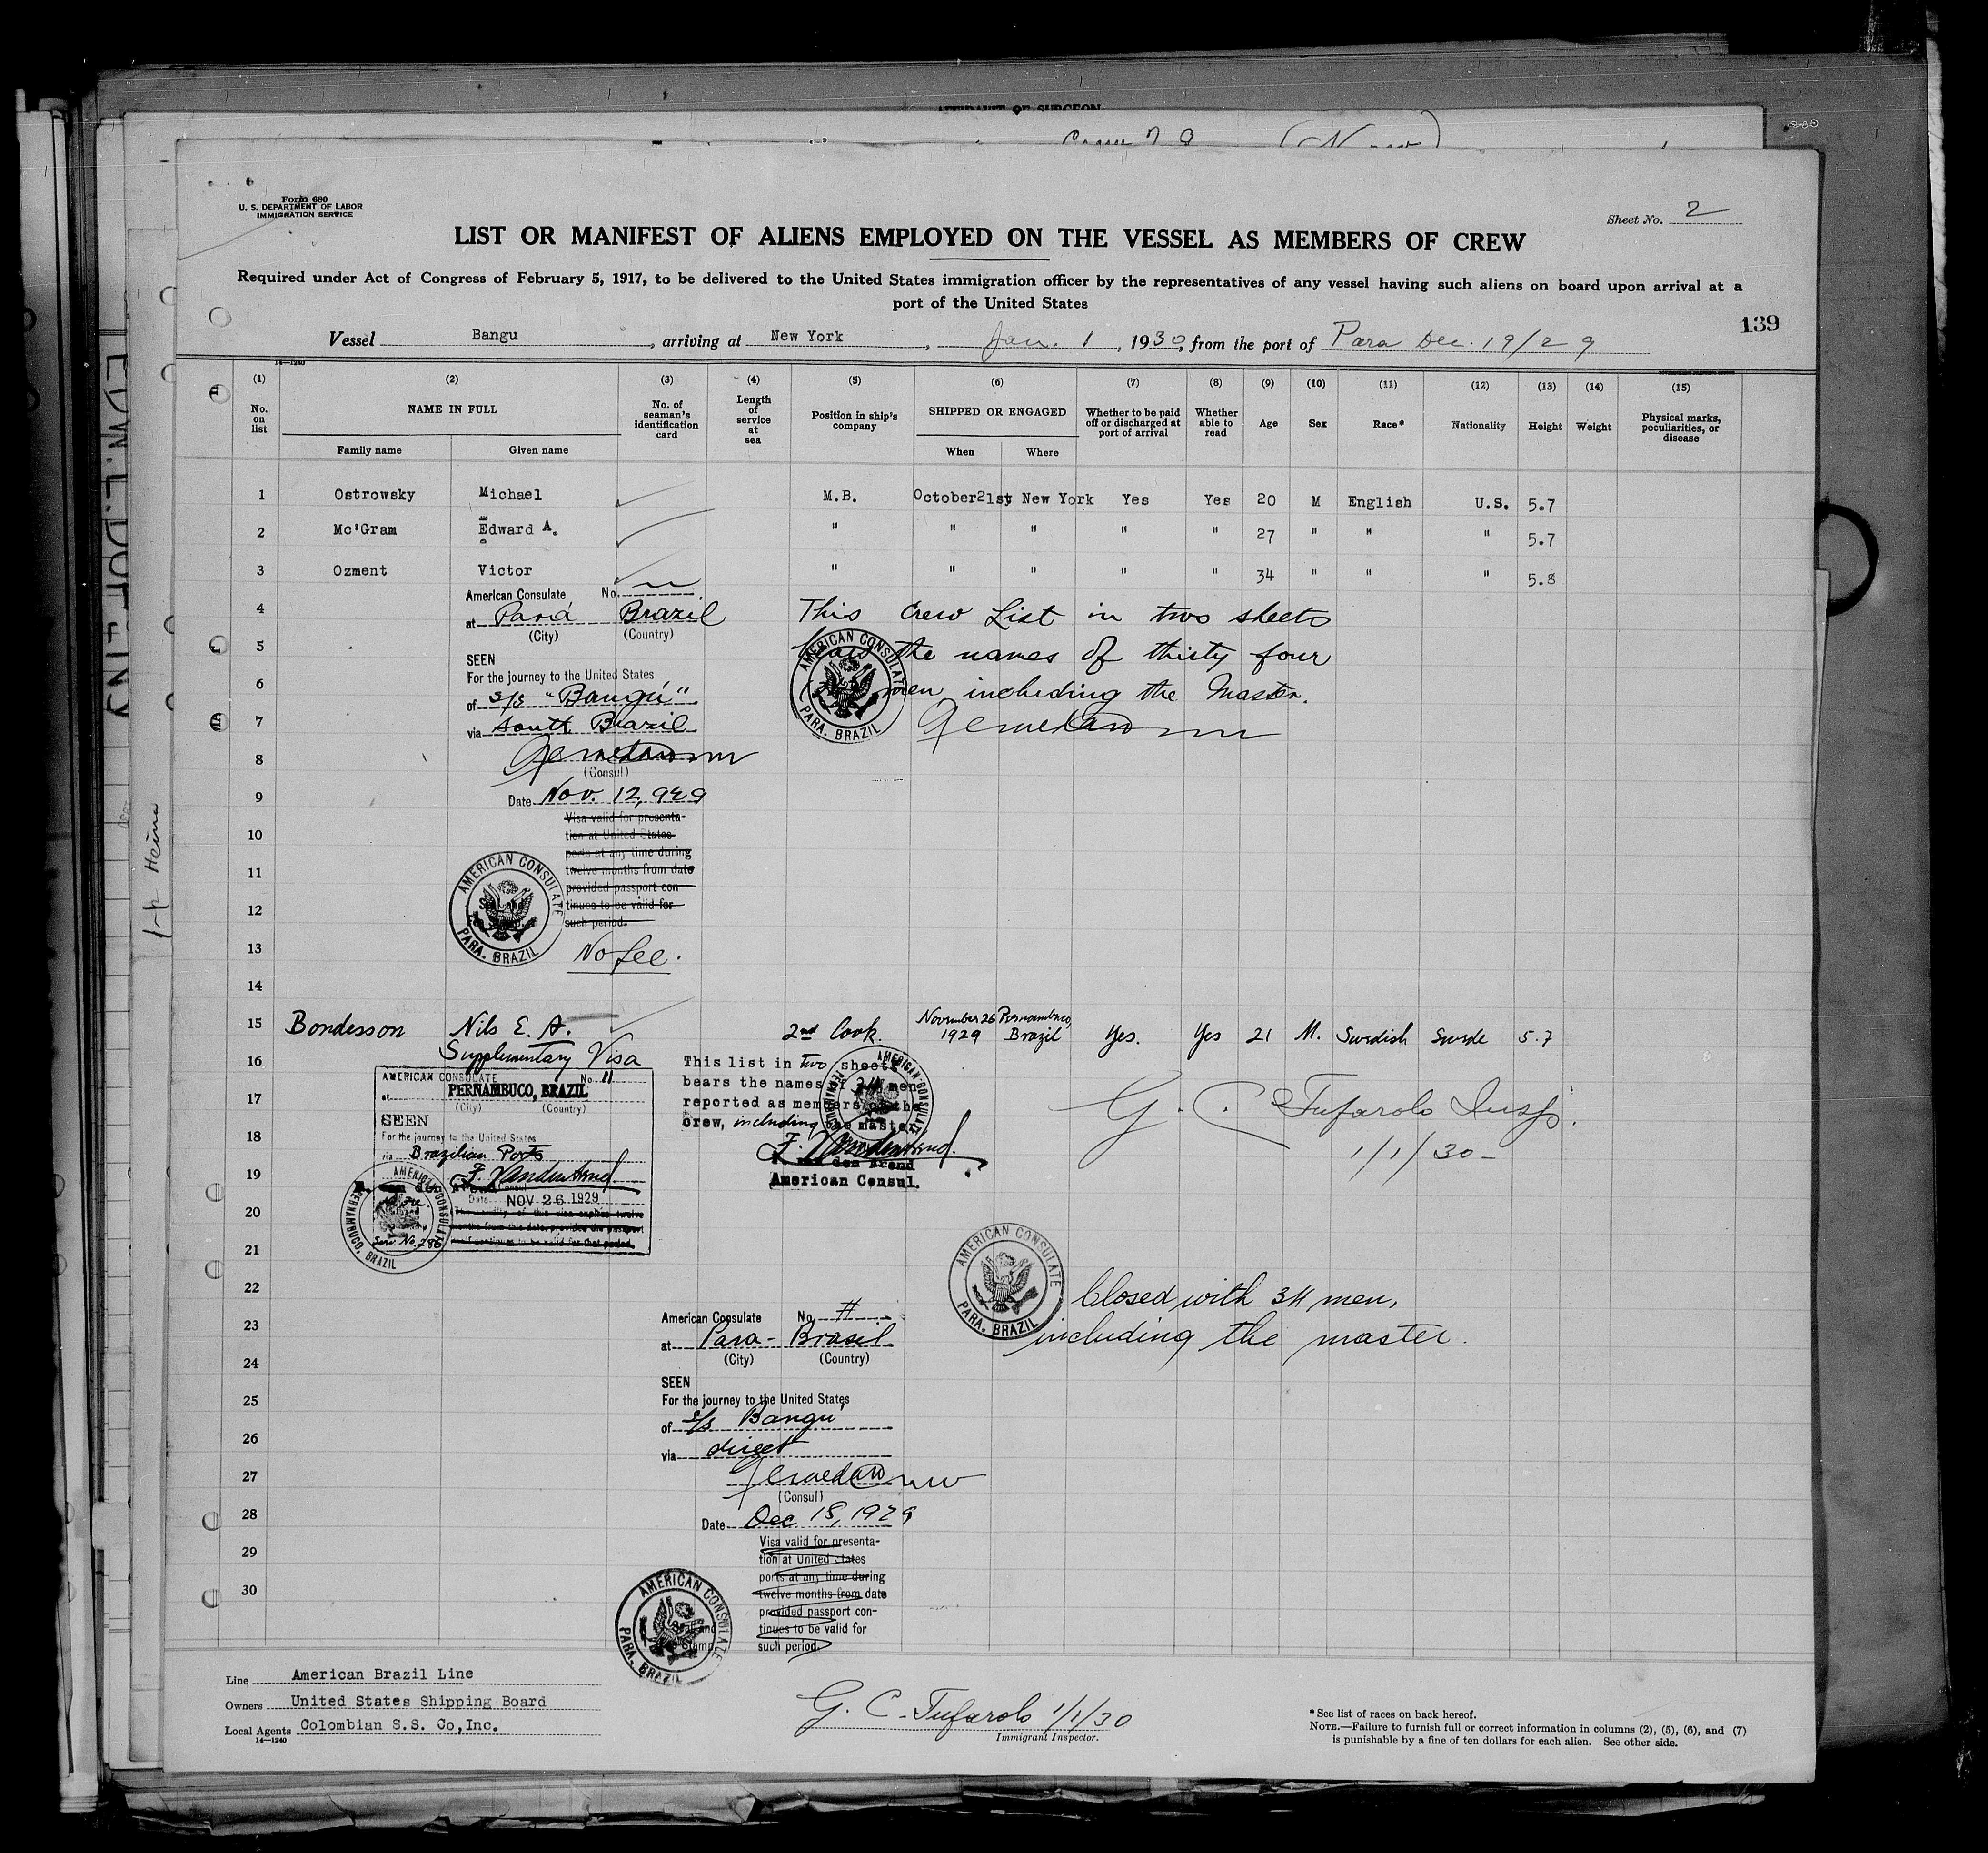 AFFIDAVIT OF SURGEON
Form 680
U. S. DEPARTMENT OF LABOR
IMMIGRATION SERVICE
Sheet No. 2
LIST OR MANIFEST OF ALIENS EMPLOYED ON THE VESSEL AS MEMBERS OF CREW
Required under Act of Congress of February 5, 1917, to be delivered to the United States immigration officer by the representatives of any vessel having such aliens on board upon arrival at a
port of the United States
139
Vessel Bangu, arriving at New York, Jan. 1, 1930, from the port of Para Dec. 19/29
14—1240
(1) (2) (3) (4) (5) (6) (7) (8) (9) (10) (11) (12) (13) (14) (15)
No. on list NAME IN FULL Family name Given name No. of seaman's identification card Length of service at sea Position in ship's company SHIPPED OR ENGAGED When Where Whether to be paid off or discharged at port of arrival Whether able to read Age Sex Race* Nationality Height Weight Physical marks, peculiarities, or disease
1 Ostrowsky Michael M.B. October 21st New York Yes Yes 20 M English U.S. 5.7
2 Mc'Gram Edward A. " " " " " 27 " " " 5.7
3 Ozment Victor " " " " " 34 " " " 5.8
American Consulate No.
4
at Pará Brazil
(City) (Country)
This Crew List in two sheets
5
the names of thirty four
SEEN
For the journey to the United States
6
of S/S "Bangú"
men, including the Master.
7
via South Brazil
AMERICAN CONSULATE PARA. BRAZIL
8
(Consul)
9
Date Nov. 12, 929
Visa valid for presenta-
10
tion at United States
ports at any time during
11
twelve months from date
provided passport con-
12
tinues to be valid for
such period.
AMERICAN CONSULATE PARA. BRAZIL
13
No fee.
14
15 Bondesson Nils E. A. 2nd Cook. November 26 1929 Pernambuco, Brazil Yes. Yes 21 M. Swedish Swede 5.7
16
Supplementary Visa
AMERICAN CONSULATE No. 11
at PERNAMBUCO, BRAZIL
(City) (Country)
17
SEEN
For the journey to the United States
18
via Brazilian Ports
19
Consul
Date NOV 26 1929
20
The validity of this visa expires twelve
months from this date, provided the passport
21
itself continues to be valid for that period.
Serv. No. 286
AMERICAN CONSULATE PERNAMBUCO, BRAZIL
This list in two sheets
bears the names of 34 men
reported as members of the
crew, including the master.
F. van den Arend
American Consul.
AMERICAN CONSULATE
G. C. Tufarolo Insp.
1/1/30
22
AMERICAN CONSULATE PARA. BRAZIL
Closed with 34 men,
including the master.
American Consulate No.
23
at Para - Brasil
24
(City) (Country)
SEEN
25
For the journey to the United States
of S/S Bangu
26
via direct
27
(Consul)
28
Date Dec 18, 1929
Visa valid for presenta-
29
tion at United States
ports at any time during
30
twelve months from date
provided passport con-
tinues to be valid for
such period.
AMERICAN CONSULATE PARA. BRAZIL
Line American Brazil Line
Owners United States Shipping Board
Local Agents Colombian S.S. Co,Inc.
14—1240
G. C. Tufarolo 1/1/30
Immigrant Inspector.
*See list of races on back hereof.
NOTE.—Failure to furnish full or correct information in columns (2), (5), (6), and (7)
is punishable by a fine of ten dollars for each alien. See other side.